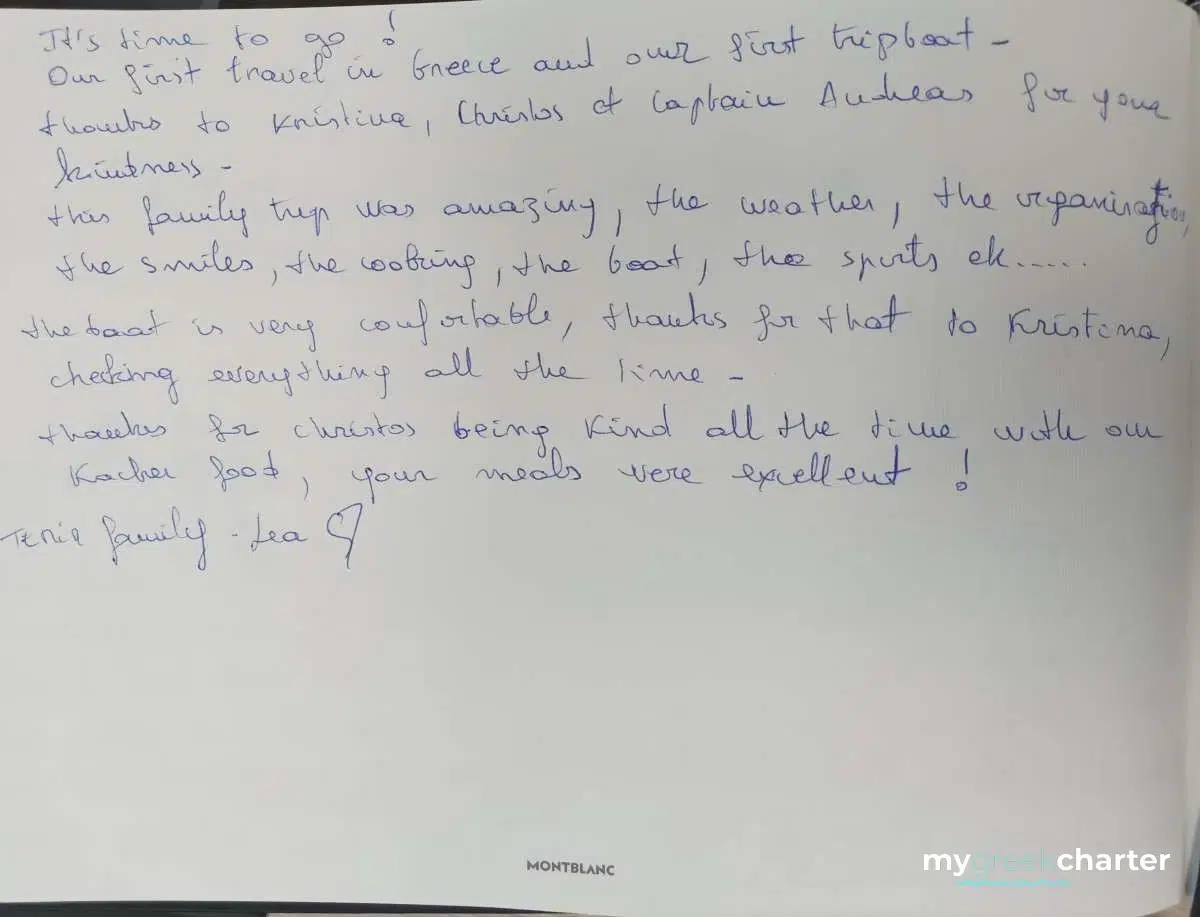 It's time to go !
Our first travel in Greece and our first tripboat -
thanks to Kristina, Christos et Captain Andreas for your
kindness -
this family trip was amazing, the weather, the organisation,
the smiles, the cooking, the boat, the sports etc.....
the boat is very confortable, thanks for that to Kristina,
checking everything all the time -
thanks for christos being kind all the time with our
Kacher food, your meals were excellent !
family - Lea
MONTBLANC
mygreekcharter